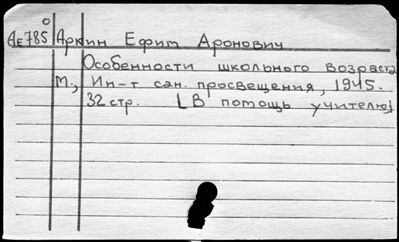 0
Ае785 Аркин Ефим Аронович
Особенности школьного возраста
М., Ин-т сан. просвещения, 1945.
32 стр. [В помощь учителю]